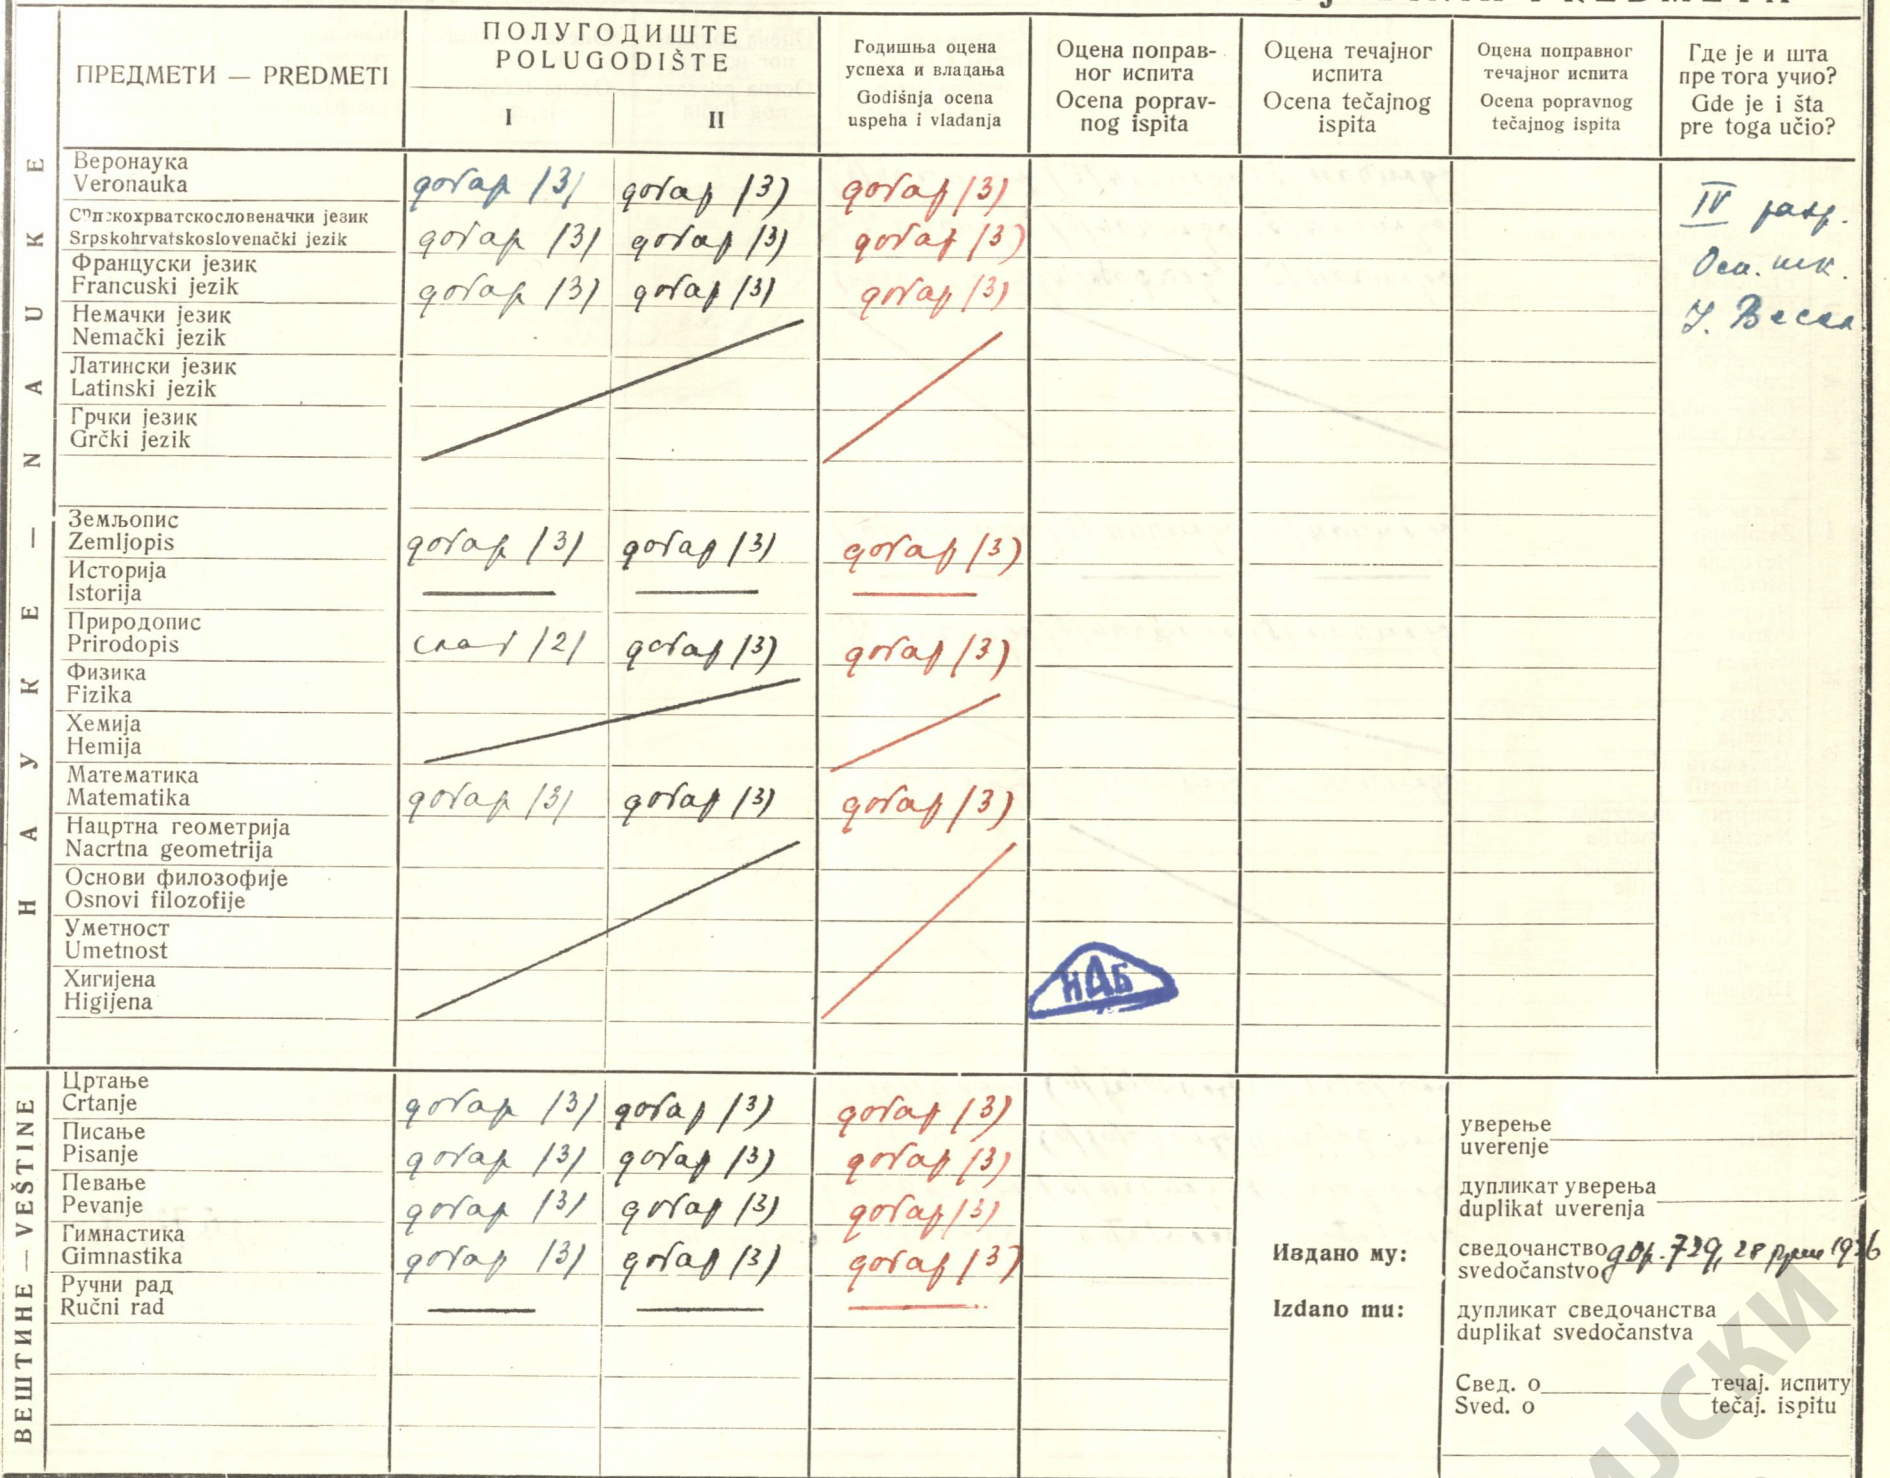 ПРЕДМЕТИ — PREDMETI
ПОЛУГОДИШТЕ
POLUGODIŠTE
I
II
Годишња оцена
успеха и владања
Godišnja ocena
uspeha i vladanja
Оцена поправ-
ног испита
Ocena poprav-
nog ispita
Оцена течајног
испита
Ocena tečajnog
ispita
Оцена поправног
течајног испита
Ocena popravnog
tečajnog ispita
Где је и шта
пре тога учио?
Gde je i šta
pre toga učio?
НАУКЕ — NAUKE
Веронаука
Veronauka
добар (3) добар (3) добар (3)
Српскохрватскословеначки језик
Srpskohrvatskoslovenački jezik
добар (3) добар (3) добар (3)
Француски језик
Francuski jezik
добар (3) добар (3) добар (3)
IV разр.
Осн. шк.
Немачки језик
Nemački jezik
Латински језик
Latinski jezik
Грчки језик
Grčki jezik
Земљопис
Zemljopis
добар (3) добар (3) добар (3)
Историја
Istorija
Природопис
Prirodopis
слаб (2) добар (3) добар (3)
Физика
Fizika
Хемија
Hemija
Математика
Matematika
добар (3) добар (3) добар (3)
Нацртна геометрија
Nacrtna geometrija
Основи филозофије
Osnovi filozofije
Уметност
Umetnost
Хигијена
Higijena
ИАБ
ВЕШТИНЕ — VEŠTINE
Цртање
Crtanje
добар (3) добар (3) добар (3)
Писање
Pisanje
добар (3) добар (3) добар (3)
Певање
Pevanje
добар (3) добар (3) добар (3)
Гимнастика
Gimnastika
добар (3) добар (3) добар (3)
Ручни рад
Ručni rad
Издано му:
Izdano mu:
уверење
uverenje
дупликат уверења
duplikat uverenja
сведочанство 729, 28 1936
svedočanstvo
дупликат сведочанства
duplikat svedočanstva
Свед. о течај. испиту
Sved. o tečaj. ispitu